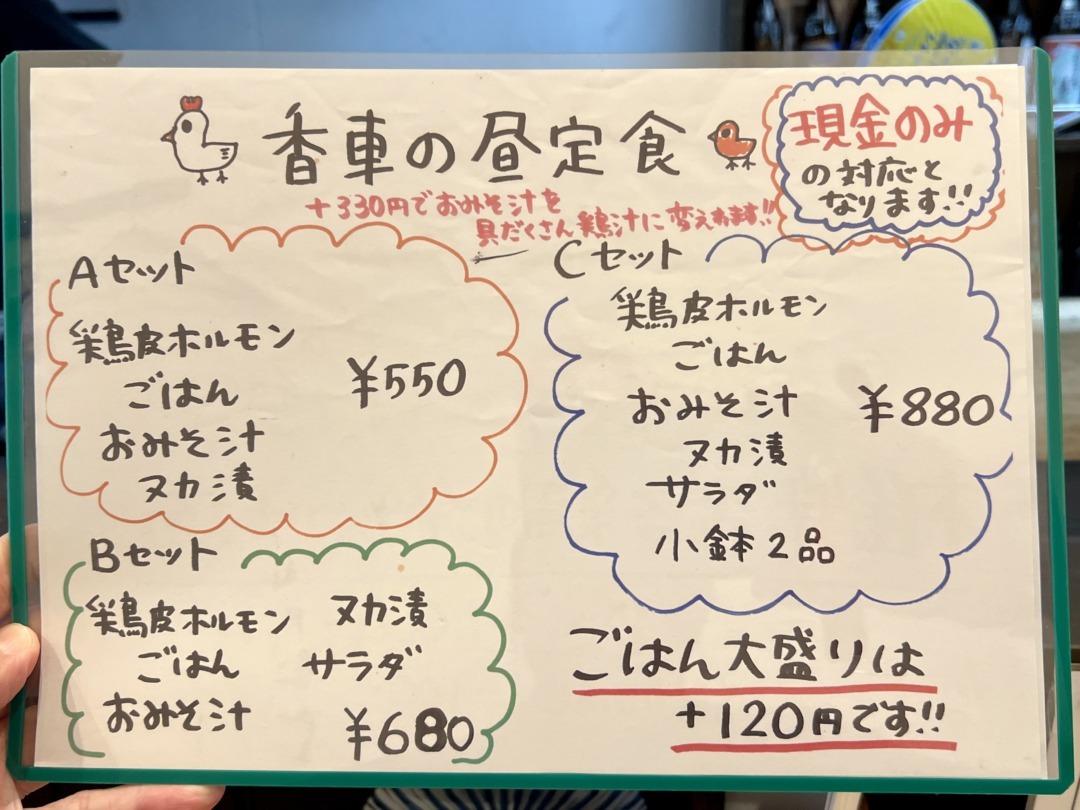 香車の昼定食
現金のみ
の対応と
なります!!
+330円でおみそ汁を
具だくさん鶏汁に変えれます!!
Aセット
鶏皮ホルモン
ごはん
おみそ汁
ヌカ漬
¥550
Bセット
鶏皮ホルモン
ごはん
おみそ汁
ヌカ漬
サラダ
¥680
Cセット
鶏皮ホルモン
ごはん
おみそ汁
ヌカ漬
サラダ
小鉢2品
¥880
ごはん大盛りは
+120円です!!